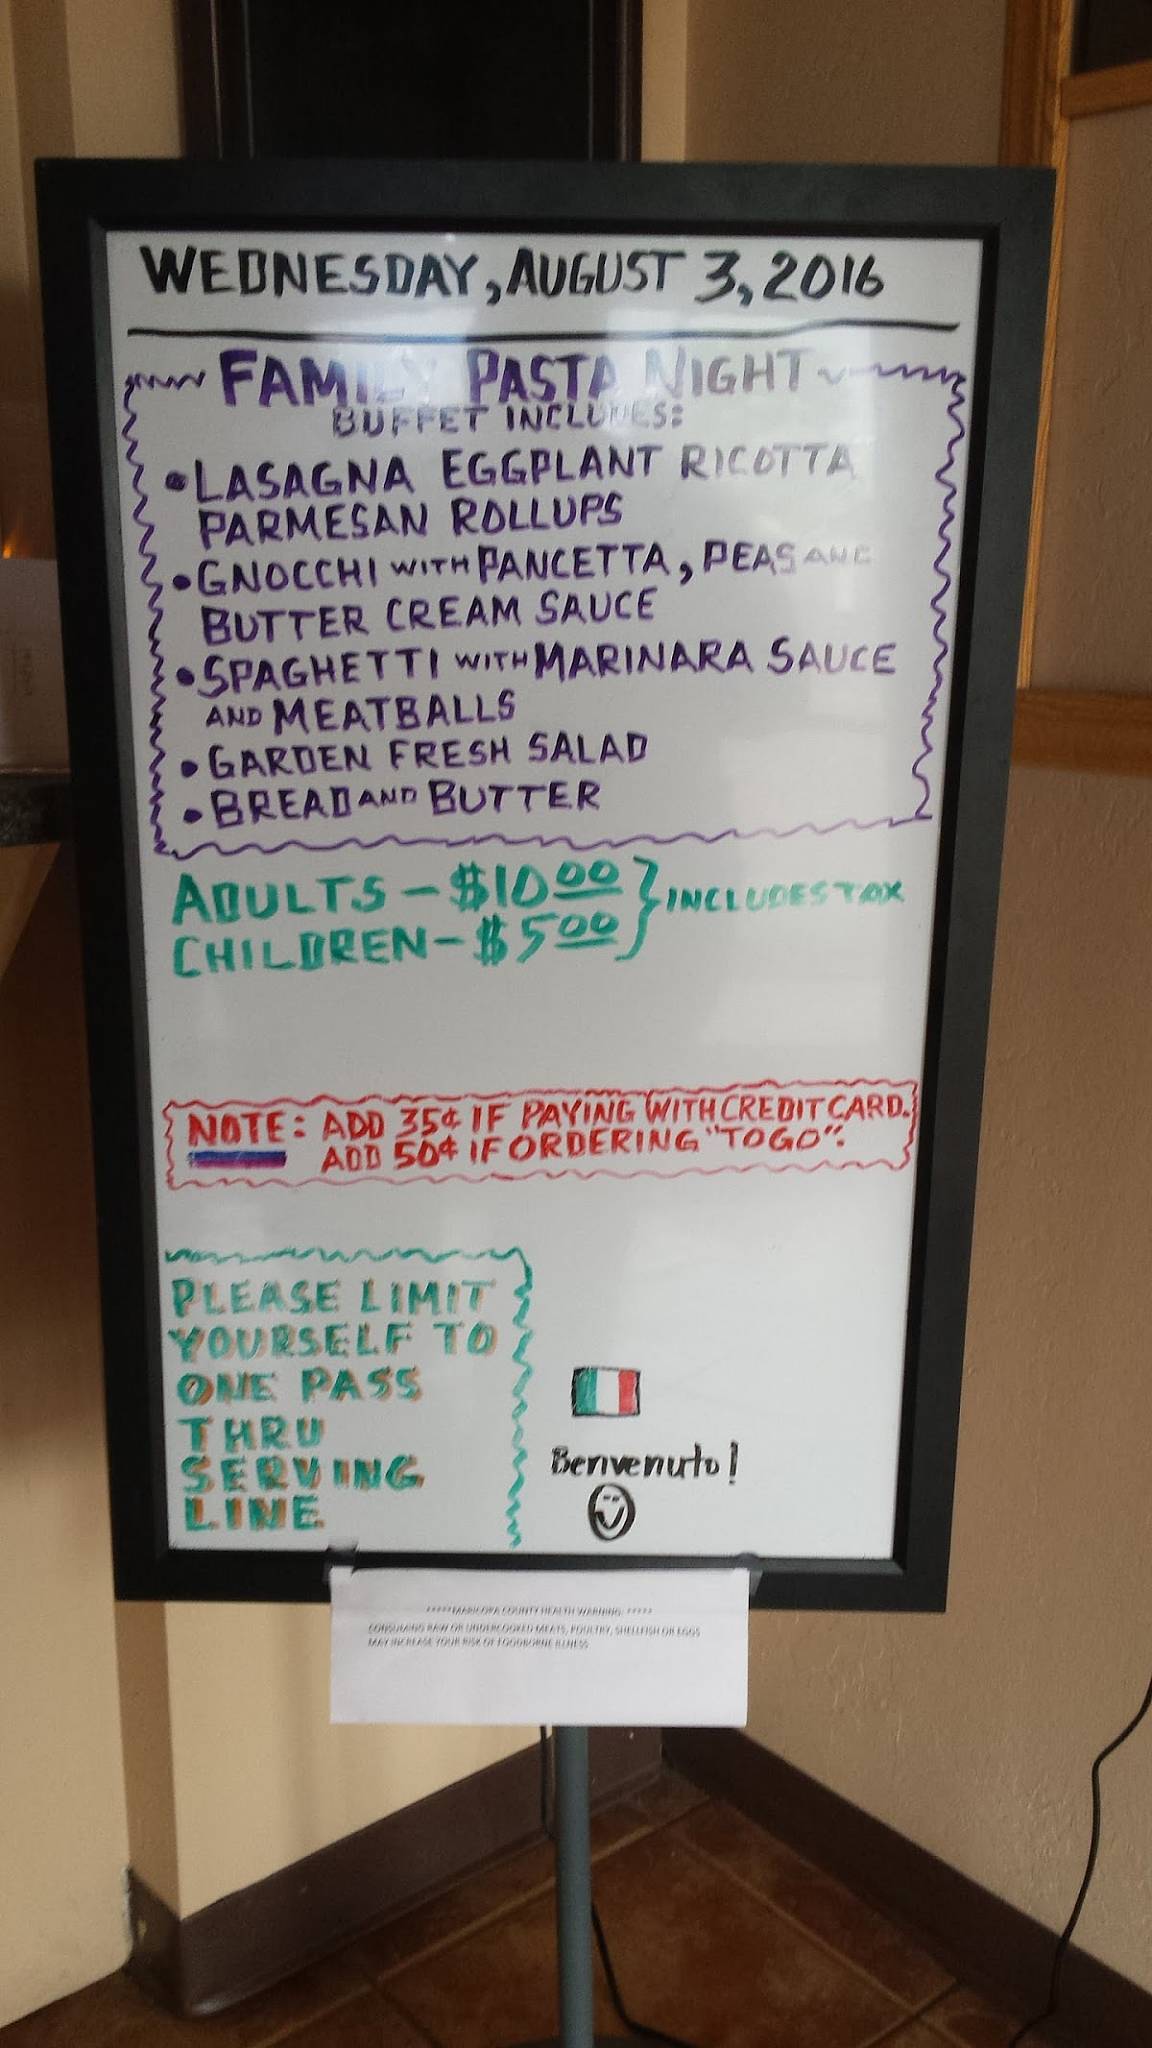 WEDNESDAY, AUGUST 3, 2016
FAMILY PASTA NIGHT
BUFFET INCLUDES:
• LASAGNA EGGPLANT RICOTTA
PARMESAN ROLLUPS
• GNOCCHI WITH PANCETTA, PEAS AND
BUTTER CREAM SAUCE
• SPAGHETTI WITH MARINARA SAUCE
AND MEATBALLS
• GARDEN FRESH SALAD
• BREAD AND BUTTER
ADULTS - $10.00 } INCLUDES TAX
CHILDREN - $5.00
NOTE: ADD 35¢ IF PAYING WITH CREDIT CARD.
ADD 50¢ IF ORDERING "TO GO".
PLEASE LIMIT
YOURSELF TO
ONE PASS
THRU
SERVING
LINE
Benvenuto!
*****MARICOPA COUNTY HEALTH WARNING: *****
CONSUMING RAW OR UNDERCOOKED MEATS, POULTRY, SHELLFISH OR EGGS
MAY INCREASE YOUR RISK OF FOODBORNE ILLNESS